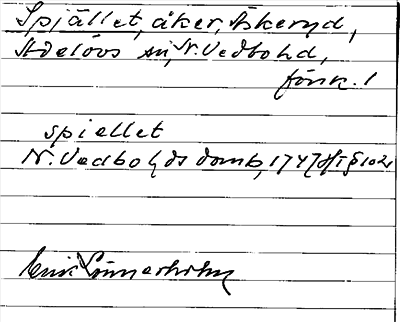 Spjället, åker, Askeryd,
Adelövs sn, N. Vedbo hd,
förk. 1
spiellet
N. Vedbo hds domb, 1747
Erik Linnerholm